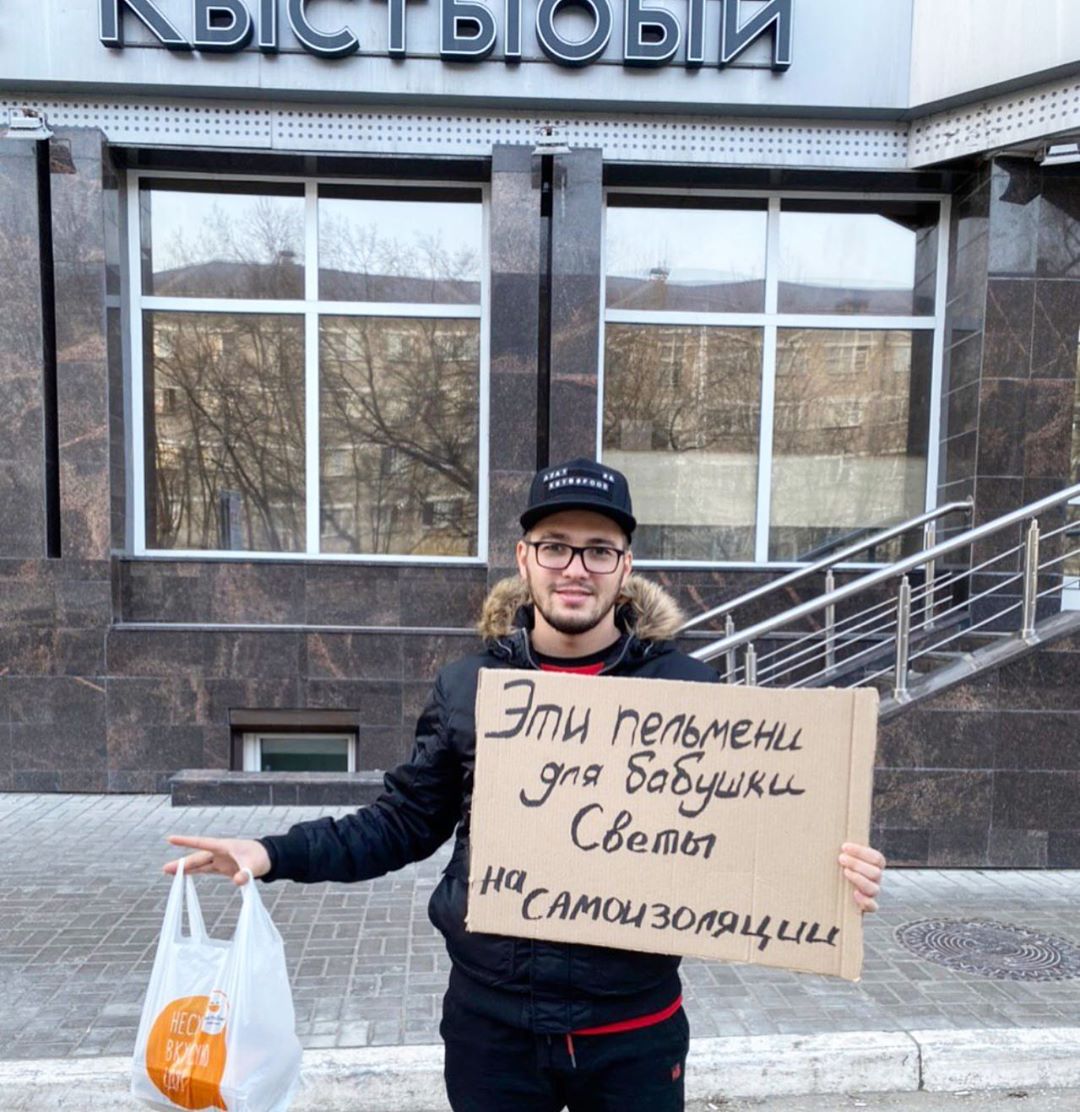 КЫСТЫБЫЙ
Эти пельмени
для бабушки
Светы
на самоизоляции
НЕСУ
ВКУСНУЮ
ЕДУ